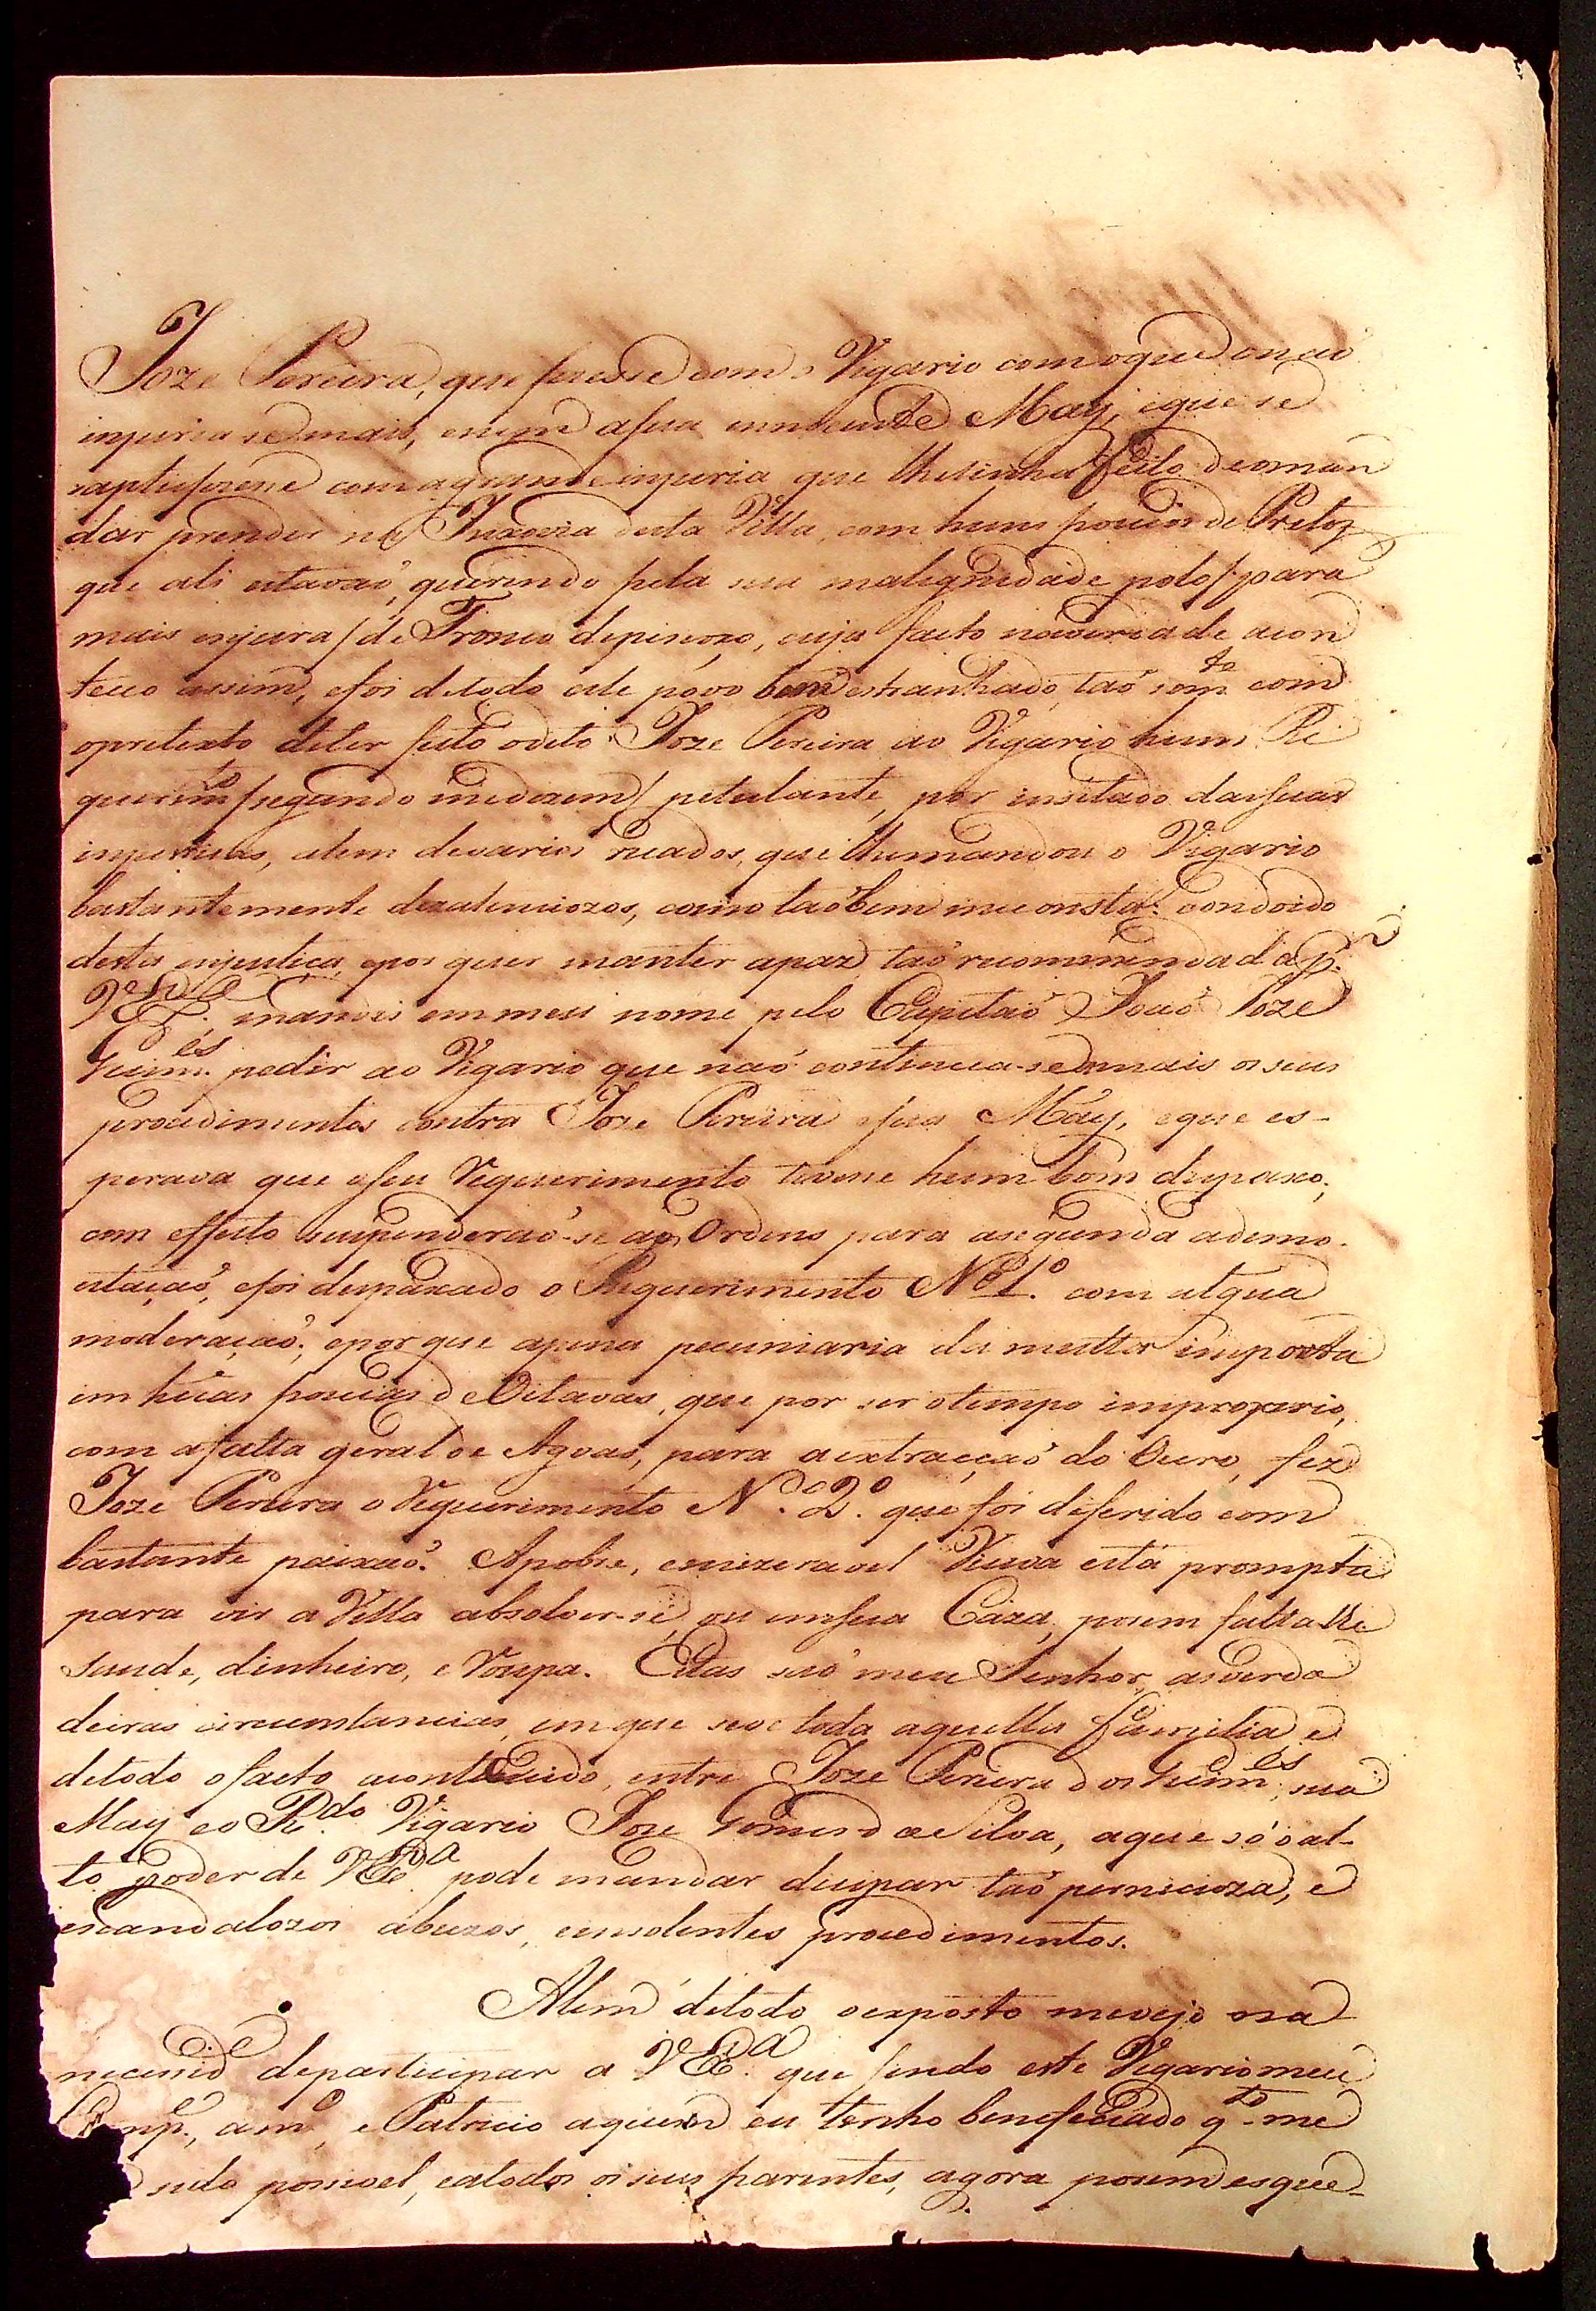 Joze Pereira, que fosse com o Vigario com o que o nao
injuria se mais, e nem a sua innocente May, e que se
satisfizesse com a grande injuria que lhe tinha feito de o man
dar prender na Inxovia desta Villa, com huns poucos de Pretos
que ali estavaõ, querendo pela sua malignidade polo / para
mais injuria / de Tronco de piscoço, cujo facto na verdade acon
teceo assim, e foi de todo este povo bem estranhado, taõ som.te com
o pretexto de ter feito o dito Joze Pereira ao Vigario hum Re
querim.to / segundo me dizem / petulante, por insitado das suas
injustiças, alem de varios recados, que lhe mandou o Vigario
bastantemente dezatenciozos, como taõbem me consta: condoido
desta injustiça, e por quer manter a paz taõ recommendada p.r
VEx.ca, mandei em meu nome pelo Capitaõ Joaõ Joze
Guim.es pedir ao Vigario que naõ continua-se mais os seus
procedimentos contra Joze Pereira e sua May, e que es-
perava que o seu Requerimento tivesse hum bom dispaxo;
com effeito suspenderaõ-se as Ordens para a segunda ademo-
estaçaõ, e foi dispaxado o Requerimento N.º 1.º com algua
moderaçaõ; e por que a pena pecuniaria da multa importa
em hũas poucas de Oitavas, que por ser o tempo improprio,
com a falta geral de Agoas, para a extracçaõ do Ouro, fez
Joze Pereira o Requerimento N.º 2.º que foi diferido com
bastante paixaõ. A pobre, e mizeravel Viuva está prompta
para vir a Villa absolver-se, ou em sua Caza, porem falta lhe
saude, dinheiro, e Roupa. Estas saõ meu Senhor, as verda
deiras circumstancias, em que se ve toda aquella familia, e
de todo o facto acontecido, entre Joze Pereira dos Guim.es, sua
May e o R.do Vigario Joze Gomes da Silva, a que só o al-
to poder de VEx.ca pode mandar dicipar taõ pernicioza, e
escandalozos abuzos, e insolentes procedimentos.
Alem de todo o exposto me vejo na
necessid.e de participar a VEx.ca que sendo este Vigario meu
Comp.e, am.o, e Patricio a quem eu tenho beneficiado q.to me
sido possivel, e a todos os seus parentes, agora porem esque-